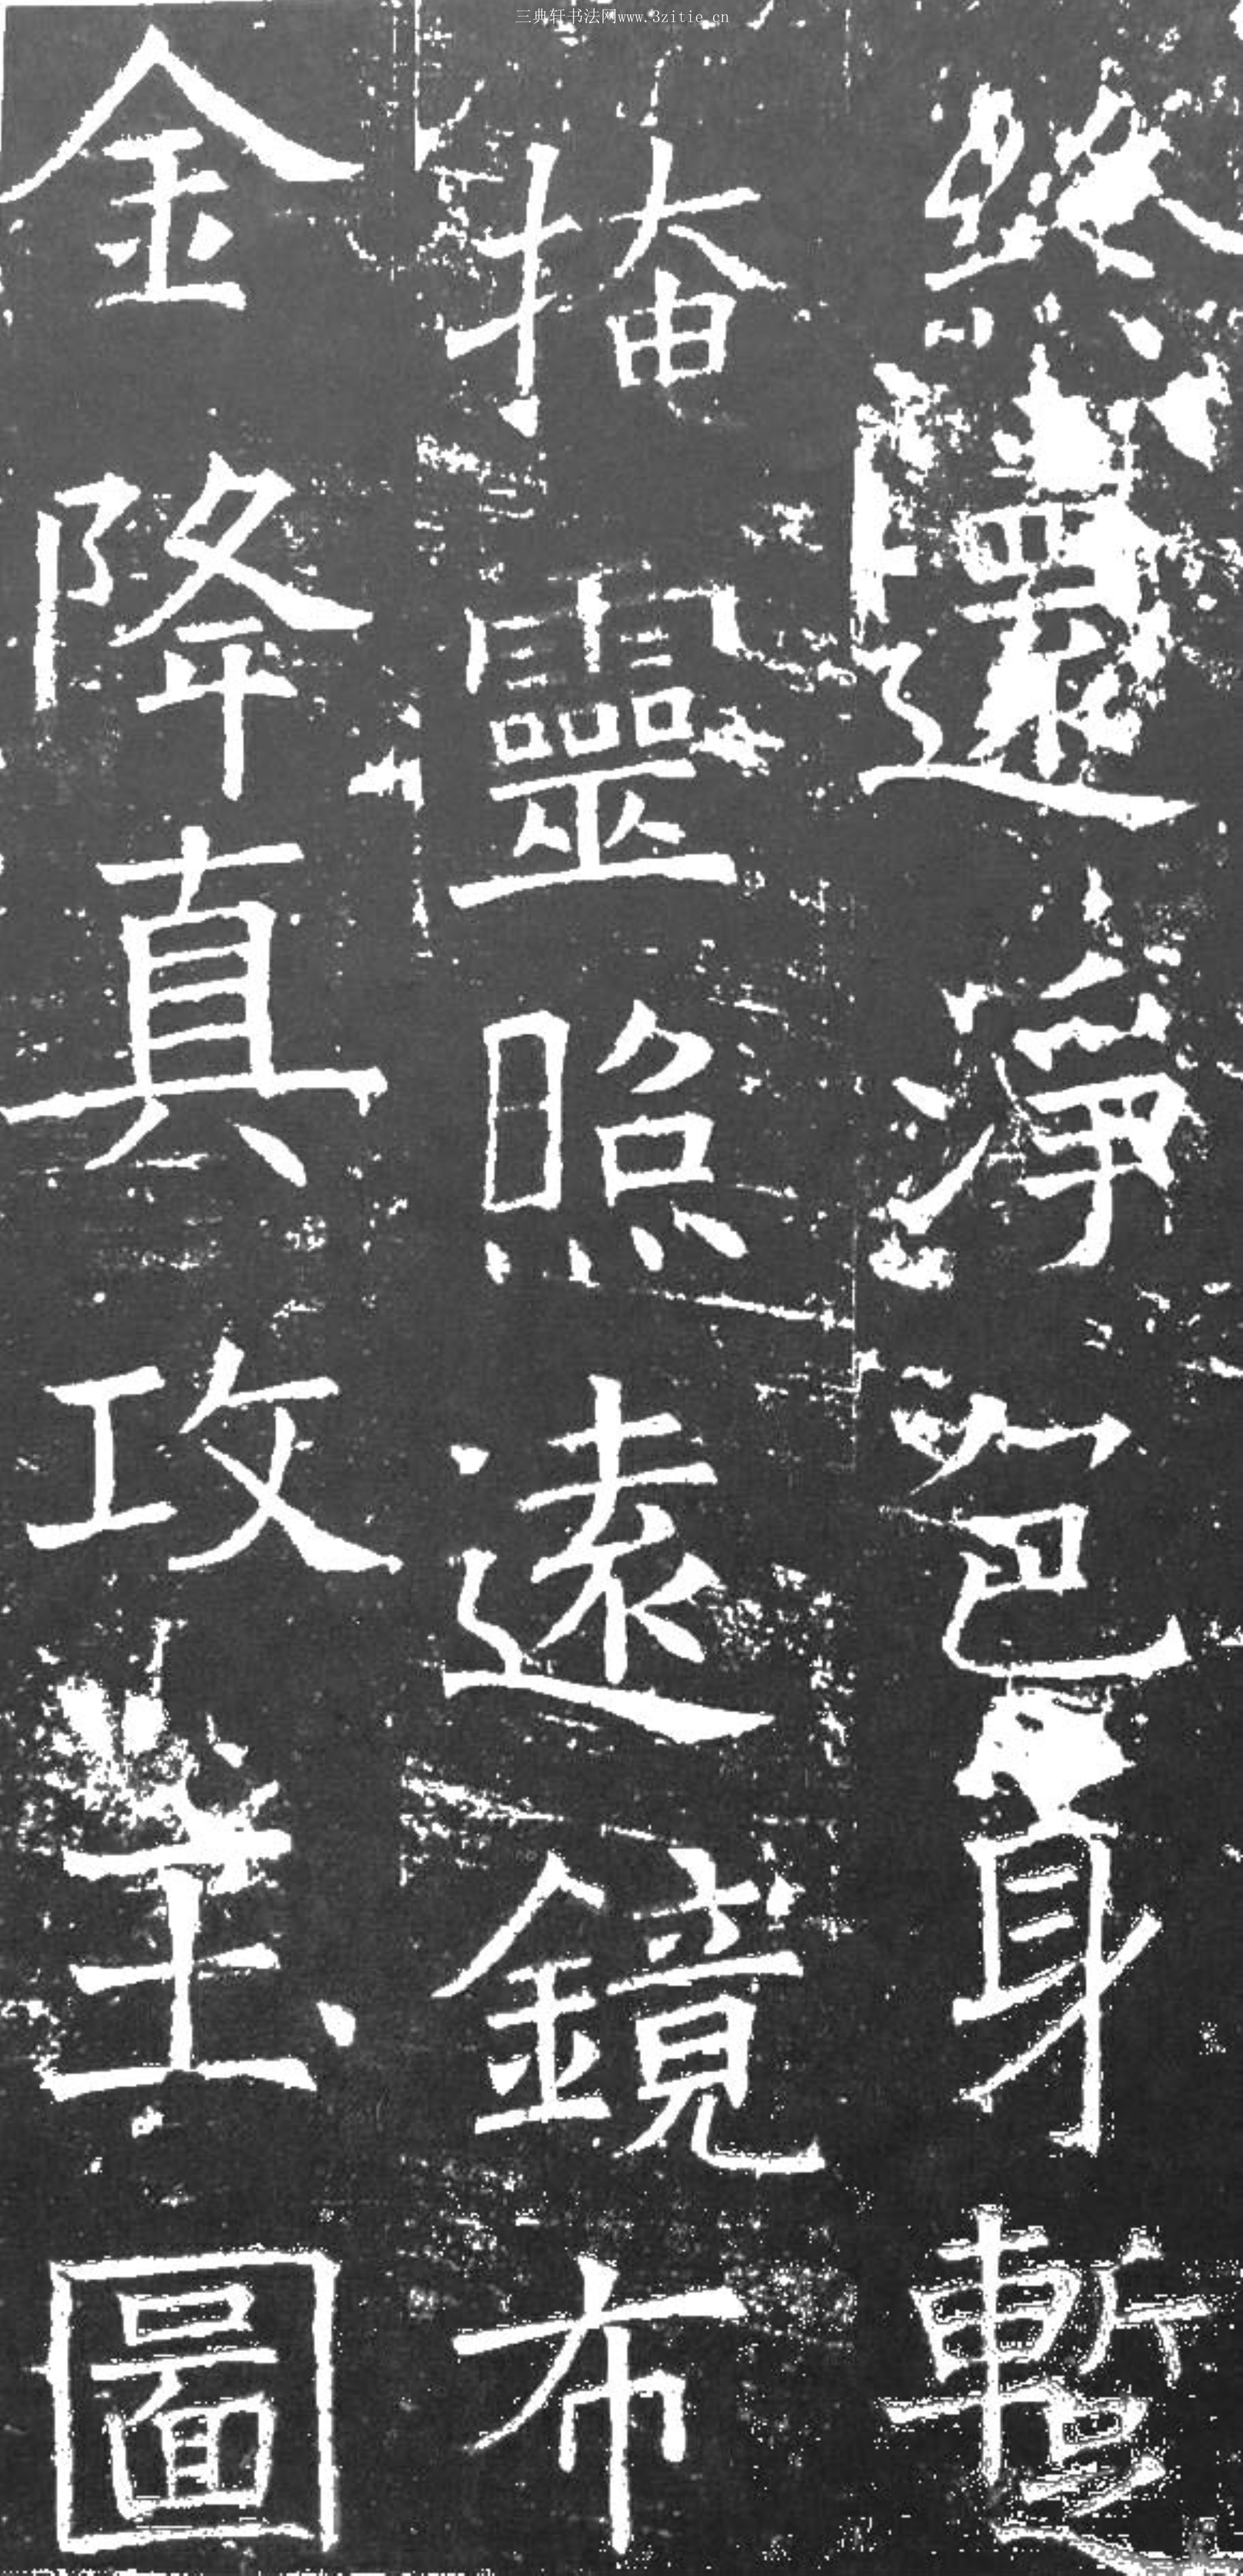 三典轩书法网www.3zitie.cn
終還淨色身蹔
掩靈照遠鏡布
金降真攻玉圖